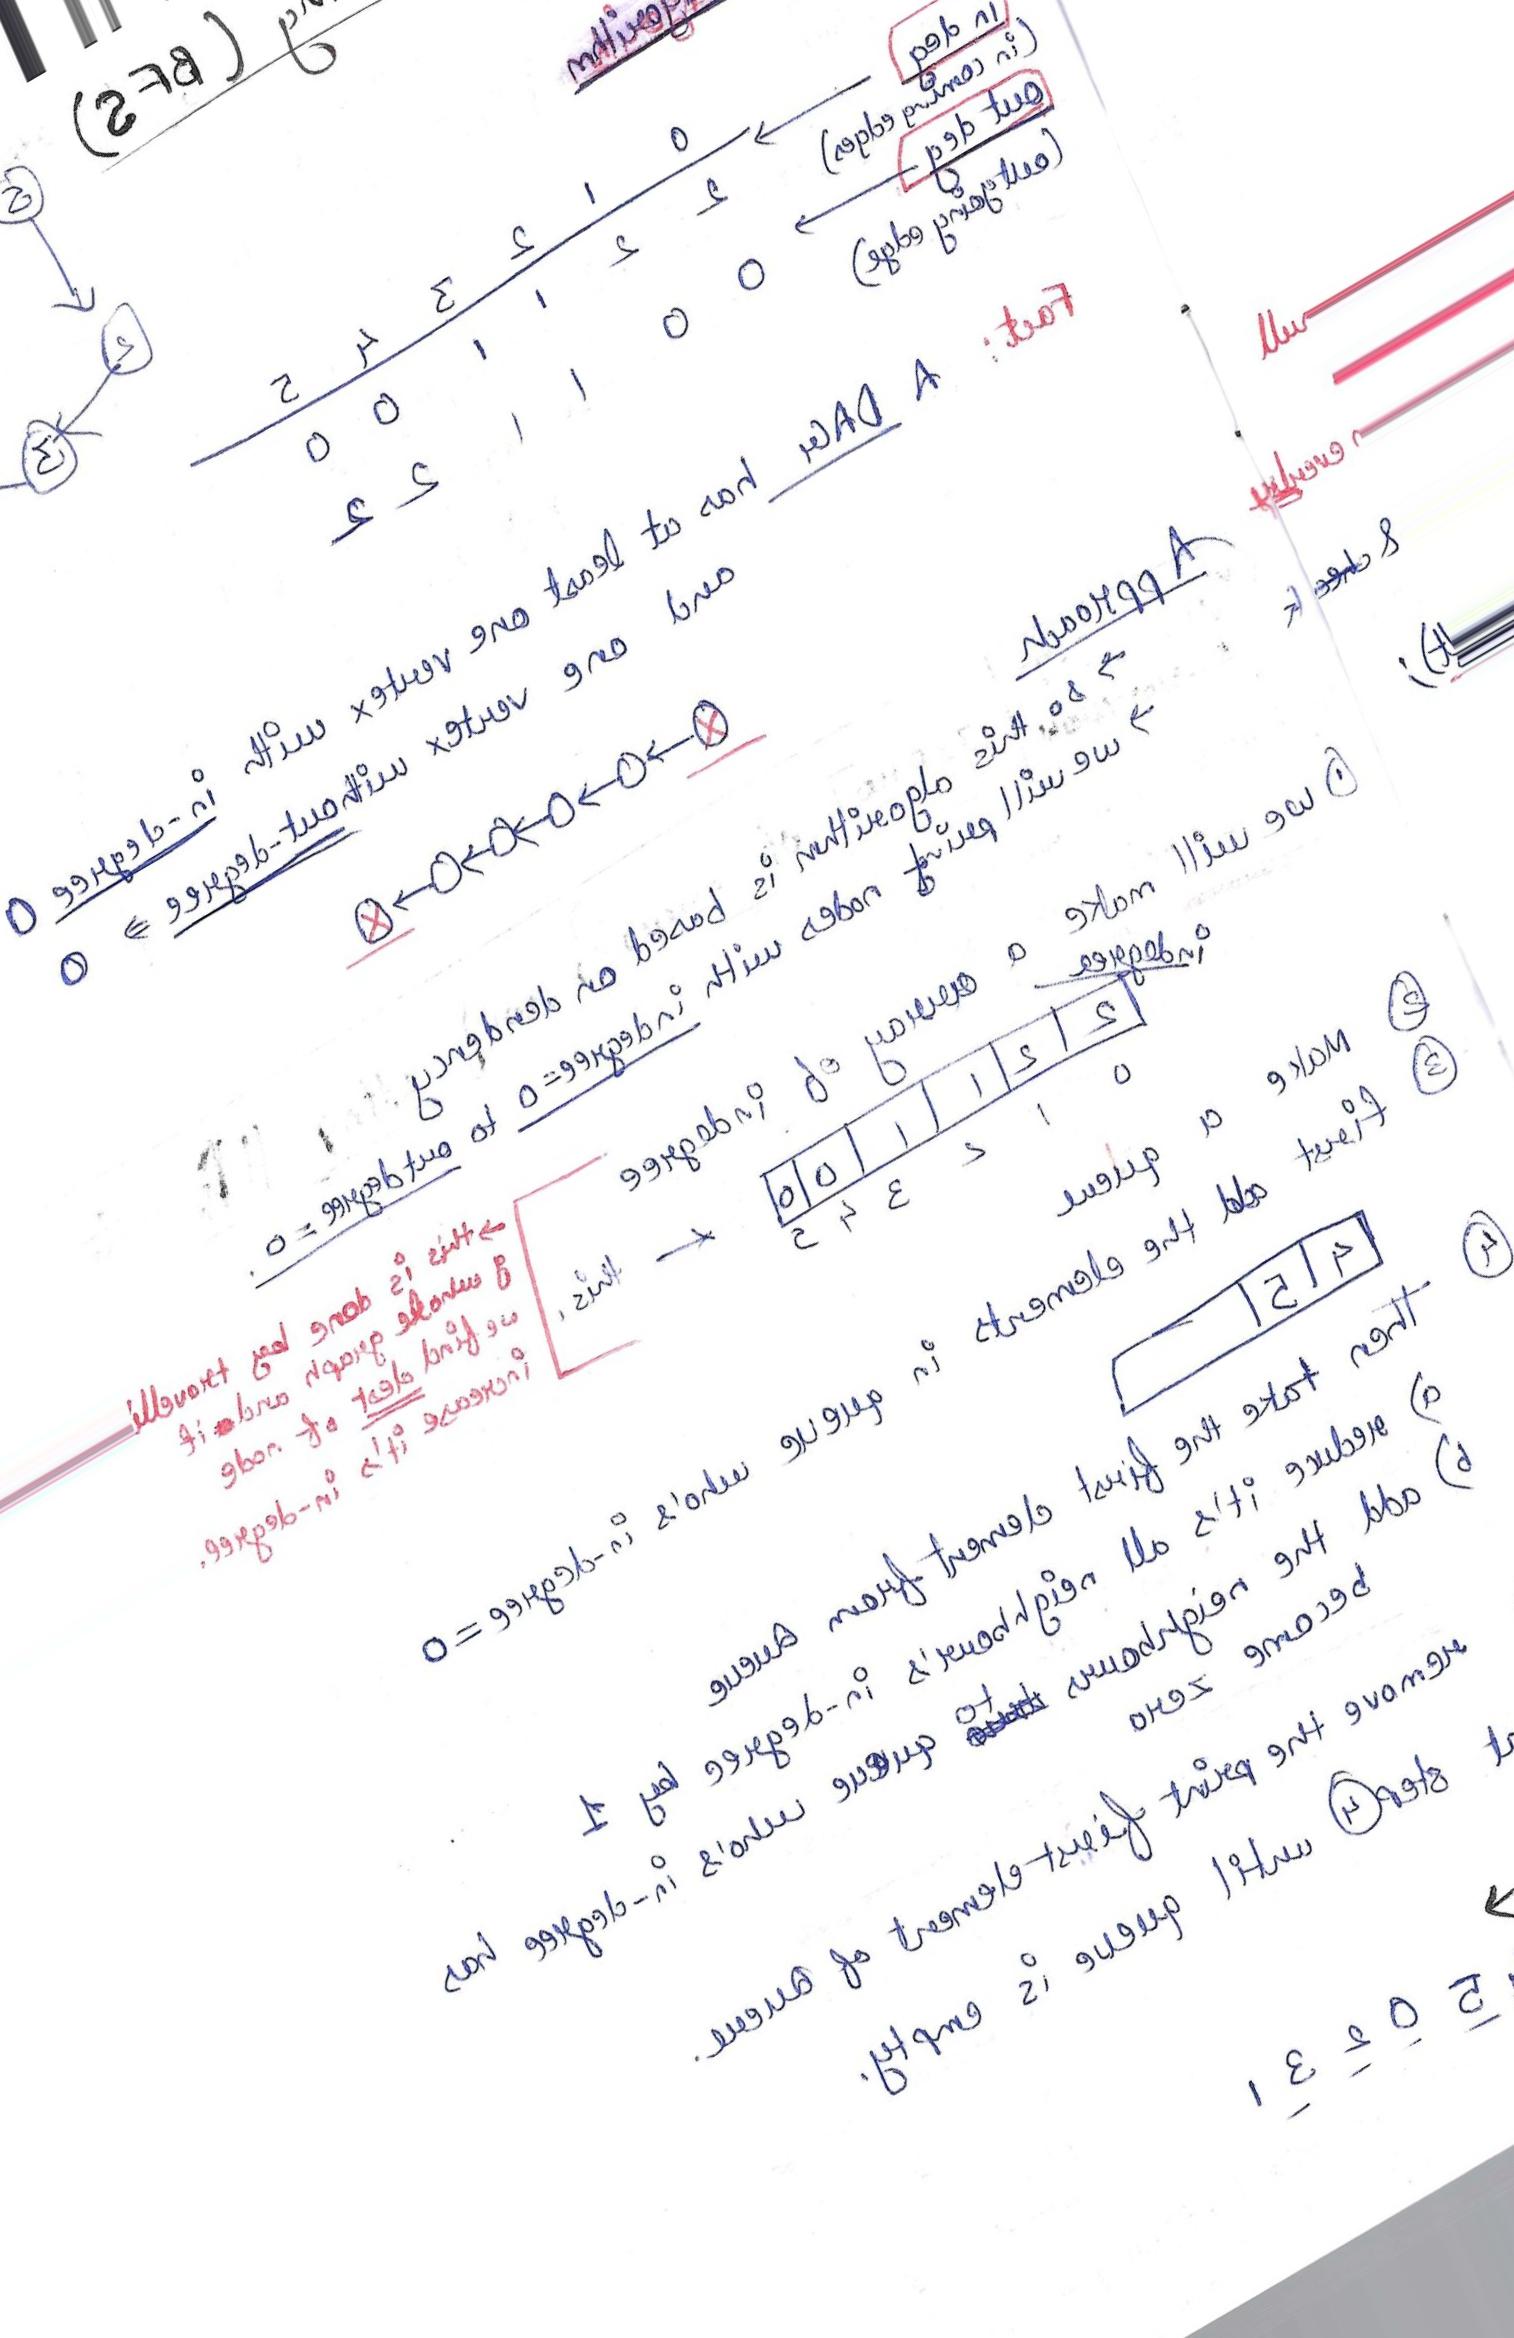 (BFS)
Algorithm
in deg
(in coming edges)
out deg
(out going edge)
0 1 2 3 4 5
2 2 1 1 0 0
0 0 1 1 2 2
2
2
3
Fact:
A DAG has at least one vertex with in-degree 0
and one vertex with out-degree = 0
Approach
→ so this algorithm is based on dendency
→ we will print nodes with indegree=0 to outdegree=0.
① we will make a array of indegree
indegree
2 2 1 1 0 0
0 1 2 3 4 5
← this,
→ this is done by travelli
g whole graph and if
we find dest of node
increase it's in-degree.
② Make a queue
③ first add the elements in queue who's in-degree = 0
4 5
④ Then take the first element from Queue
a) reduce it's all neighbour's in-degree by 1
b) add the neighbours to queue who's in-degree has
become zero
remove the print first element of Queue.
step ④ until queue is empty.
5 0 2 3 1
will
every